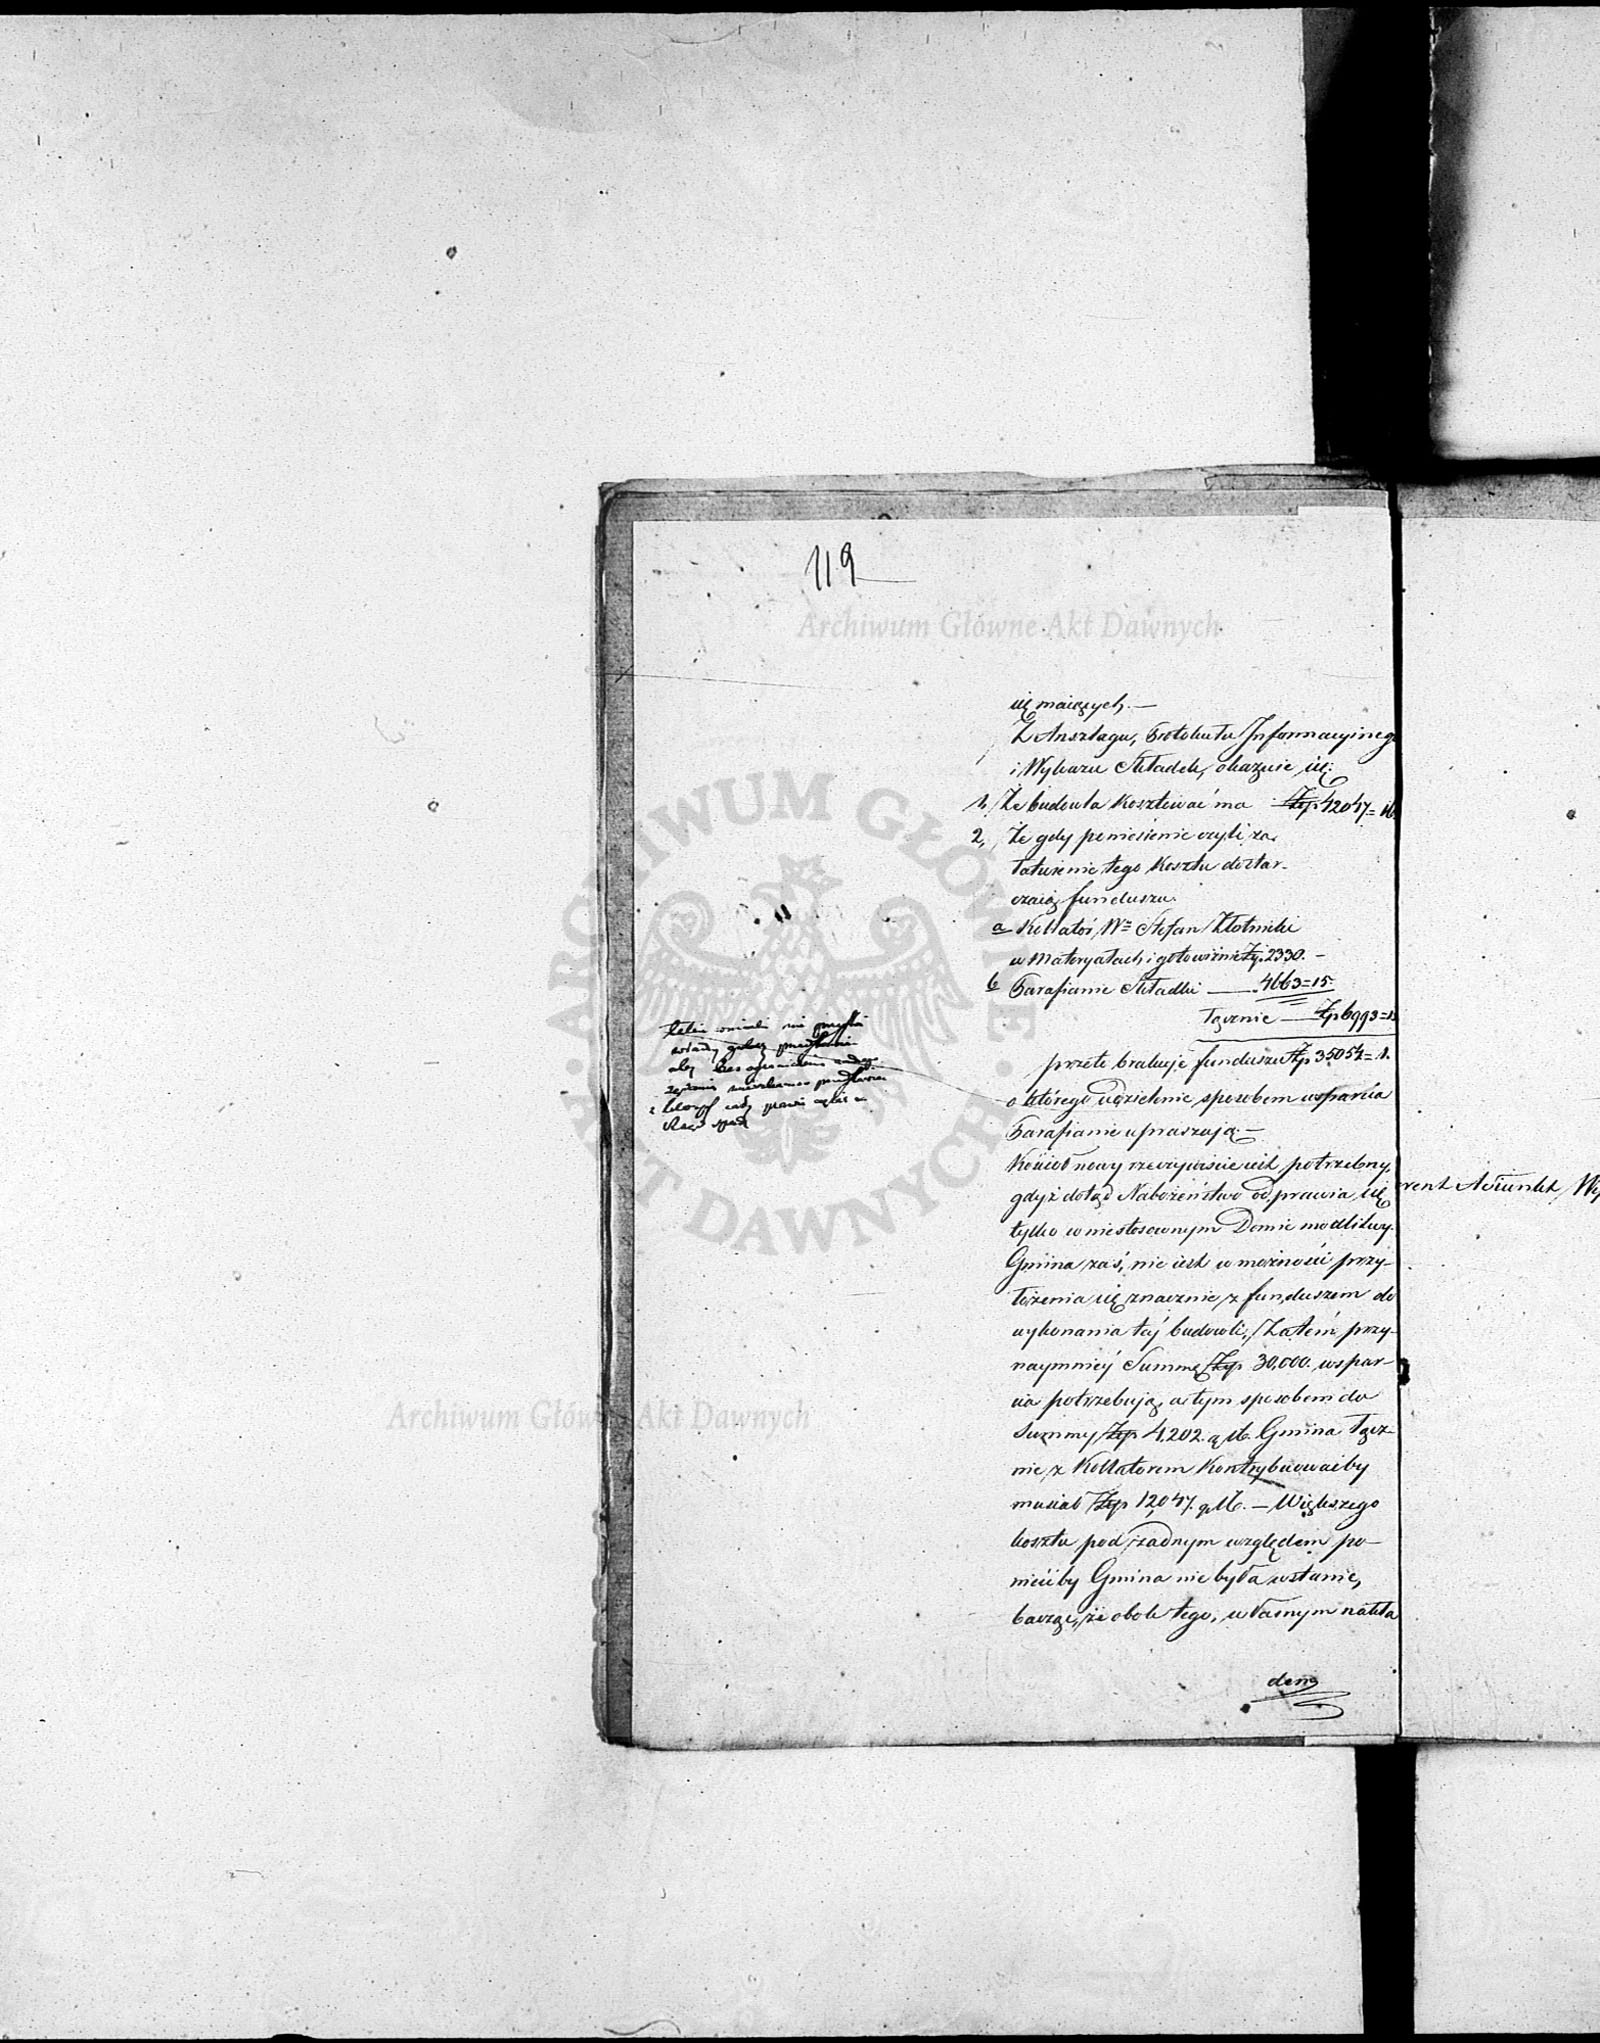 119
Archiwum Główne Akt Dawnych
się maiących. —
Z Anszlagu, Protokułu Informacyinego
i Wykazu Składek, okazuie się:
1. Że budowla kosztować ma Złp 42047 = 16
2, Że gdy poniesienie czyli za-
łatwienie tego kosztu dostar-
czaią funduszu.
a Kollator W= Stefan Złotnicki
w Materyałach i gotowiźnie Złp. 2330. —
b Parafianie Składki — 4663 = 15.
Łącznie — Złp 6993 = 15
przeto brakuje funduszu Złp 35054 = 1.
o którego udzielenie sposobem wsparcia
Parafianie upraszają. —
Kościoł nowy rzeczywiście iest potrzebny,
gdyż dotąd Nabożeństwo odprawia się
tylko w niestosownym Domie modlitwy.
Gmina zaś, nie iest w możności przy-
łożenia się znacznie z funduszem do
wykonania tej budowli, Zatem przy-
naymniey Summę Złp 30,000. wspar-
cia potrzebują, a tym sposobem do
Summy Złp 4,202. g 16. Gmina łącz-
nie z Kollatorem kontrybuowaćby
musiał Złp 12,047. g 16. — Większego
kosztu pod żadnym względem po-
nieśćby Gmina nie była w stanie,
bacząc, że obok tego, własnym nakła
dem
aby bez ograniczenia
Archiwum Główne Akt Dawnych
ARCHIWUM GŁÓWNE AKT DAWNYCH